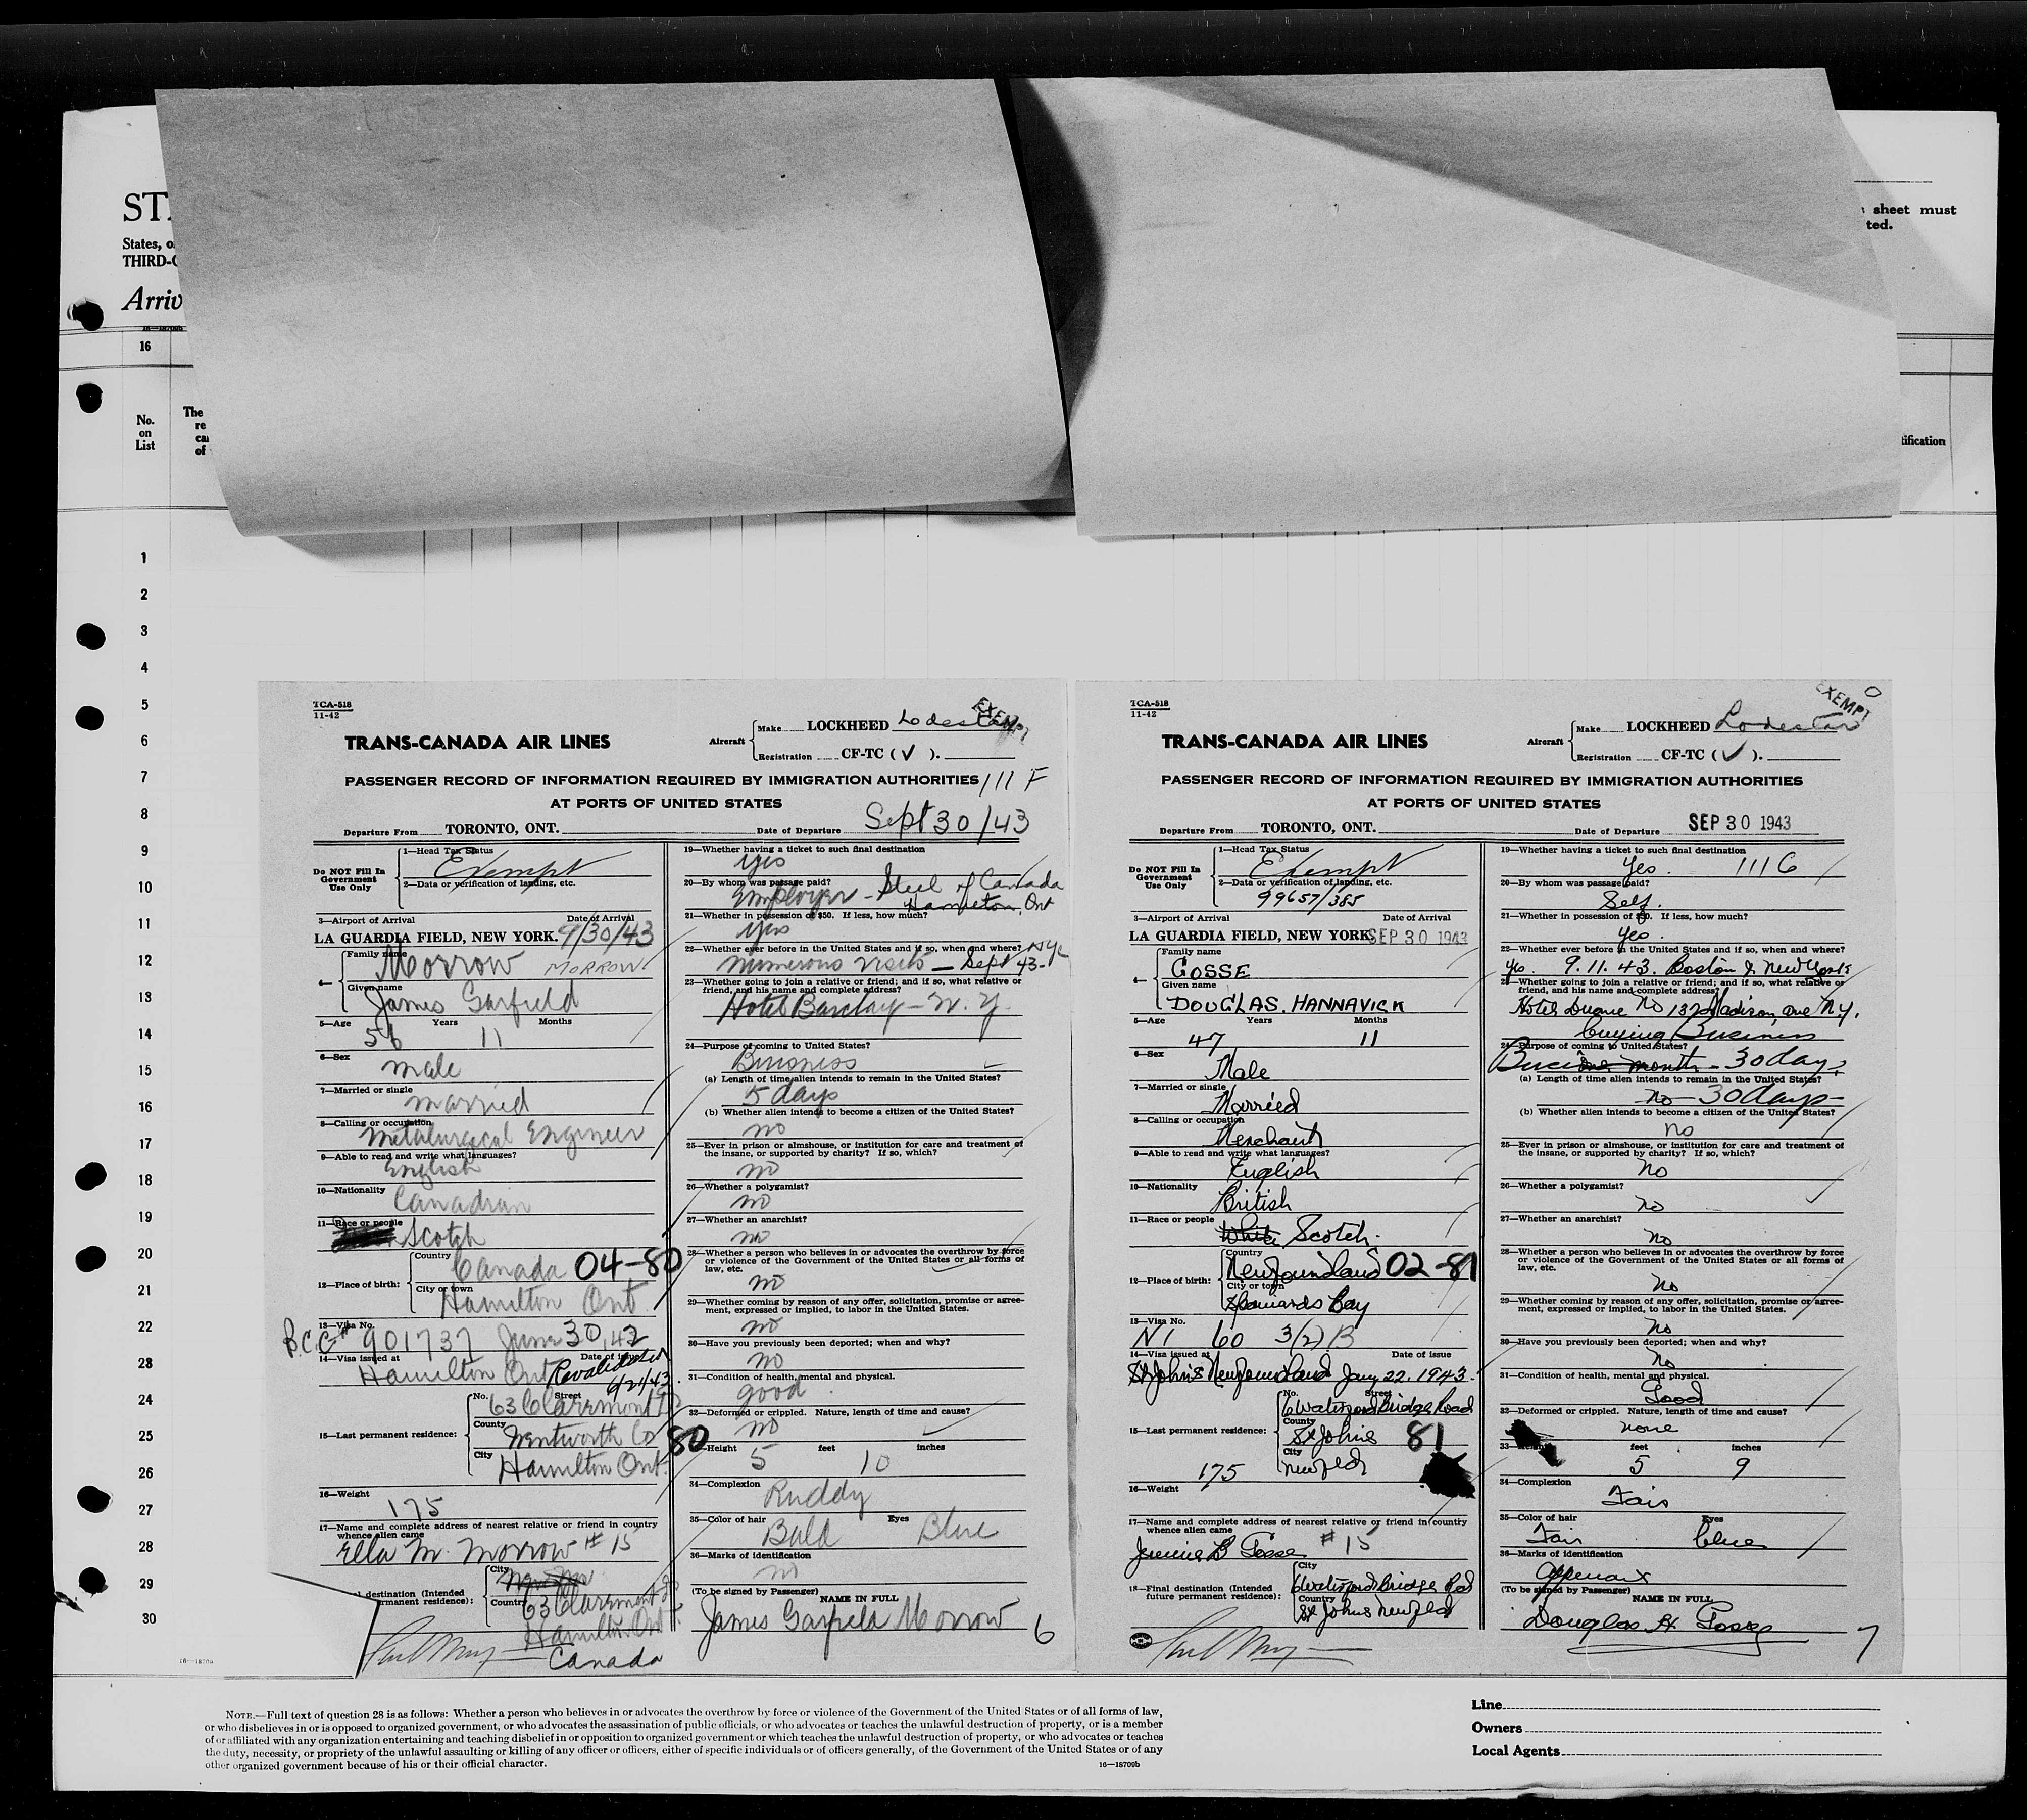 ST
States, o
THIRD-C
Arriv
16
No.
on
List
The
re
ca
of
sheet must
ted.
tification
1
2
3
4
5
6
7
8
9
10
11
12
13
14
15
16
17
18
19
20
21
22
23
24
25
26
27
28
29
30
TCA-518
11-42
EXEMPT
TRANS-CANADA AIR LINES
Aircraft
Make LOCKHEED Lodestar
Registration CF-TC (✓).
PASSENGER RECORD OF INFORMATION REQUIRED BY IMMIGRATION AUTHORITIES 111 F
AT PORTS OF UNITED STATES
Departure From TORONTO, ONT. Date of Departure Sept 30/43
Do NOT Fill In
Government
Use Only
1—Head Tax Status
Exempt
2—Data or verification of landing, etc.
3—Airport of Arrival Date of Arrival
LA GUARDIA FIELD, NEW YORK. 9/30/43
4—
Family name
Morrow MORROW
Given name
James Garfield
5—Age Years Months
56 11
6—Sex
male
7—Married or single
married
8—Calling or occupation
Metalurgical Engineer
9—Able to read and write what languages?
English
10—Nationality
Canadian
11—Race or people
Scotch
12—Place of birth:
Country
Canada 04-80
City or town
Hamilton Ont
13—Visa No.
B.C.C. # 901737 June 30, 42
14—Visa issued at Date of issue
Hamilton Ont Revalidated
6/21/43
15—Last permanent residence:
No. Street
63 Claremont Dr
County
Wentworth Co 80
City
Hamilton Ont.
16—Weight
175
17—Name and complete address of nearest relative or friend in country
whence alien came
Ella M. Morrow # 15
l destination (Intended
rmanent residence):
City
Country
63 Claremont Dr
Hamilton Ont
Canada
19—Whether having a ticket to such final destination
yes
20—By whom was passage paid?
Employer - Steel of Canada
Hamilton, Ont
21—Whether in possession of $50. If less, how much?
yes
22—Whether ever before in the United States and if so, when and where?
numerous visits — Sept 43 - NYC
23—Whether going to join a relative or friend; and if so, what relative or
friend, and his name and complete address?
Hotel Barclay — N. Y.
24—Purpose of coming to United States?
Business
(a) Length of time alien intends to remain in the United States?
5 days
(b) Whether alien intends to become a citizen of the United States?
no
25—Ever in prison or almshouse, or institution for care and treatment of
the insane, or supported by charity? If so, which?
no
26—Whether a polygamist?
no
27—Whether an anarchist?
no
28—Whether a person who believes in or advocates the overthrow by force
or violence of the Government of the United States or all forms of
law, etc.
no
29—Whether coming by reason of any offer, solicitation, promise or agree-
ment, expressed or implied, to labor in the United States.
no
30—Have you previously been deported; when and why?
no
31—Condition of health, mental and physical.
good
32—Deformed or crippled. Nature, length of time and cause?
no
Height feet inches
5 10
34—Complexion
Ruddy
35—Color of hair Eyes
Bald Blue
36—Marks of identification
no
(To be signed by Passenger) NAME IN FULL
James Garfield Morrow 6
TCA-518
11-42
EXEMPT
TRANS-CANADA AIR LINES
Aircraft
Make LOCKHEED Lodestar
Registration CF-TC (✓).
PASSENGER RECORD OF INFORMATION REQUIRED BY IMMIGRATION AUTHORITIES
AT PORTS OF UNITED STATES
Departure From TORONTO, ONT. Date of Departure SEP 30 1943
Do NOT Fill In
Government
Use Only
1—Head Tax Status
Exempt
2—Data or verification of landing, etc.
99657/385
3—Airport of Arrival Date of Arrival
LA GUARDIA FIELD, NEW YORK SEP 30 1943
4—
Family name
GOSSE
Given name
DOUGLAS. HANNAVICK
5—Age Years Months
47 11
6—Sex
Male
7—Married or single
Married
8—Calling or occupation
Merchant
9—Able to read and write what languages?
English
10—Nationality
British
11—Race or people
White Scotch.
12—Place of birth:
Country
Newfoundland 02-81
City or town
Spaniards Bay
13—Visa No.
NI 60 3(2) B
14—Visa issued at Date of issue
St John's Newfoundland Jany 22, 1943.
15—Last permanent residence:
No. Street
6 Waterford Bridge Road
County
St Johns 81
City
Newfld
175
16—Weight
17—Name and complete address of nearest relative or friend in country
whence alien came
Jennie B Gosse # 15
18—Final destination (Intended
future permanent residence):
City
6 Waterford Bridge Rd
Country
St Johns Newfld
19—Whether having a ticket to such final destination
Yes. 111 G
20—By whom was passage paid?
Self.
21—Whether in possession of $50. If less, how much?
Yes.
22—Whether ever before in the United States and if so, when and where?
yes. 9.11.43. Boston & New York
23—Whether going to join a relative or friend; and if so, what relative or
friend, and his name and complete address?
Hotel Duane No 132 Madison Ave N.Y.
buying Business
24—Purpose of coming to United States?
one month - 30 days
(a) Length of time alien intends to remain in the United States?
no — 30 days —
(b) Whether alien intends to become a citizen of the United States?
no
25—Ever in prison or almshouse, or institution for care and treatment of
the insane, or supported by charity? If so, which?
no
26—Whether a polygamist?
no
27—Whether an anarchist?
no
28—Whether a person who believes in or advocates the overthrow by force
or violence of the Government of the United States or all forms of
law, etc.
no
29—Whether coming by reason of any offer, solicitation, promise or agree-
ment, expressed or implied, to labor in the United States.
no
30—Have you previously been deported; when and why?
no
31—Condition of health, mental and physical.
Good
32—Deformed or crippled. Nature, length of time and cause?
none
33—Height feet inches
5 9
34—Complexion
Fair
35—Color of hair Eyes
Fair blue
36—Marks of identification
Appendix
(To be signed by Passenger) NAME IN FULL
Douglas H Gosse 7
NOTE.—Full text of question 28 is as follows: Whether a person who believes in or advocates the overthrow by force or violence of the Government of the United States or of all forms of law,
or who disbelieves in or is opposed to organized government, or who advocates the assassination of public officials, or who advocates or teaches the unlawful destruction of property, or is a member
of or affiliated with any organization entertaining and teaching disbelief in or opposition to organized government or which teaches the unlawful destruction of property, or who advocates or teaches
the duty, necessity, or propriety of the unlawful assaulting or killing of any officer or officers, either of specific individuals or of officers generally, of the Government of the United States or of any
other organized government because of his or their official character.
16—18709b
Line
Owners
Local Agents